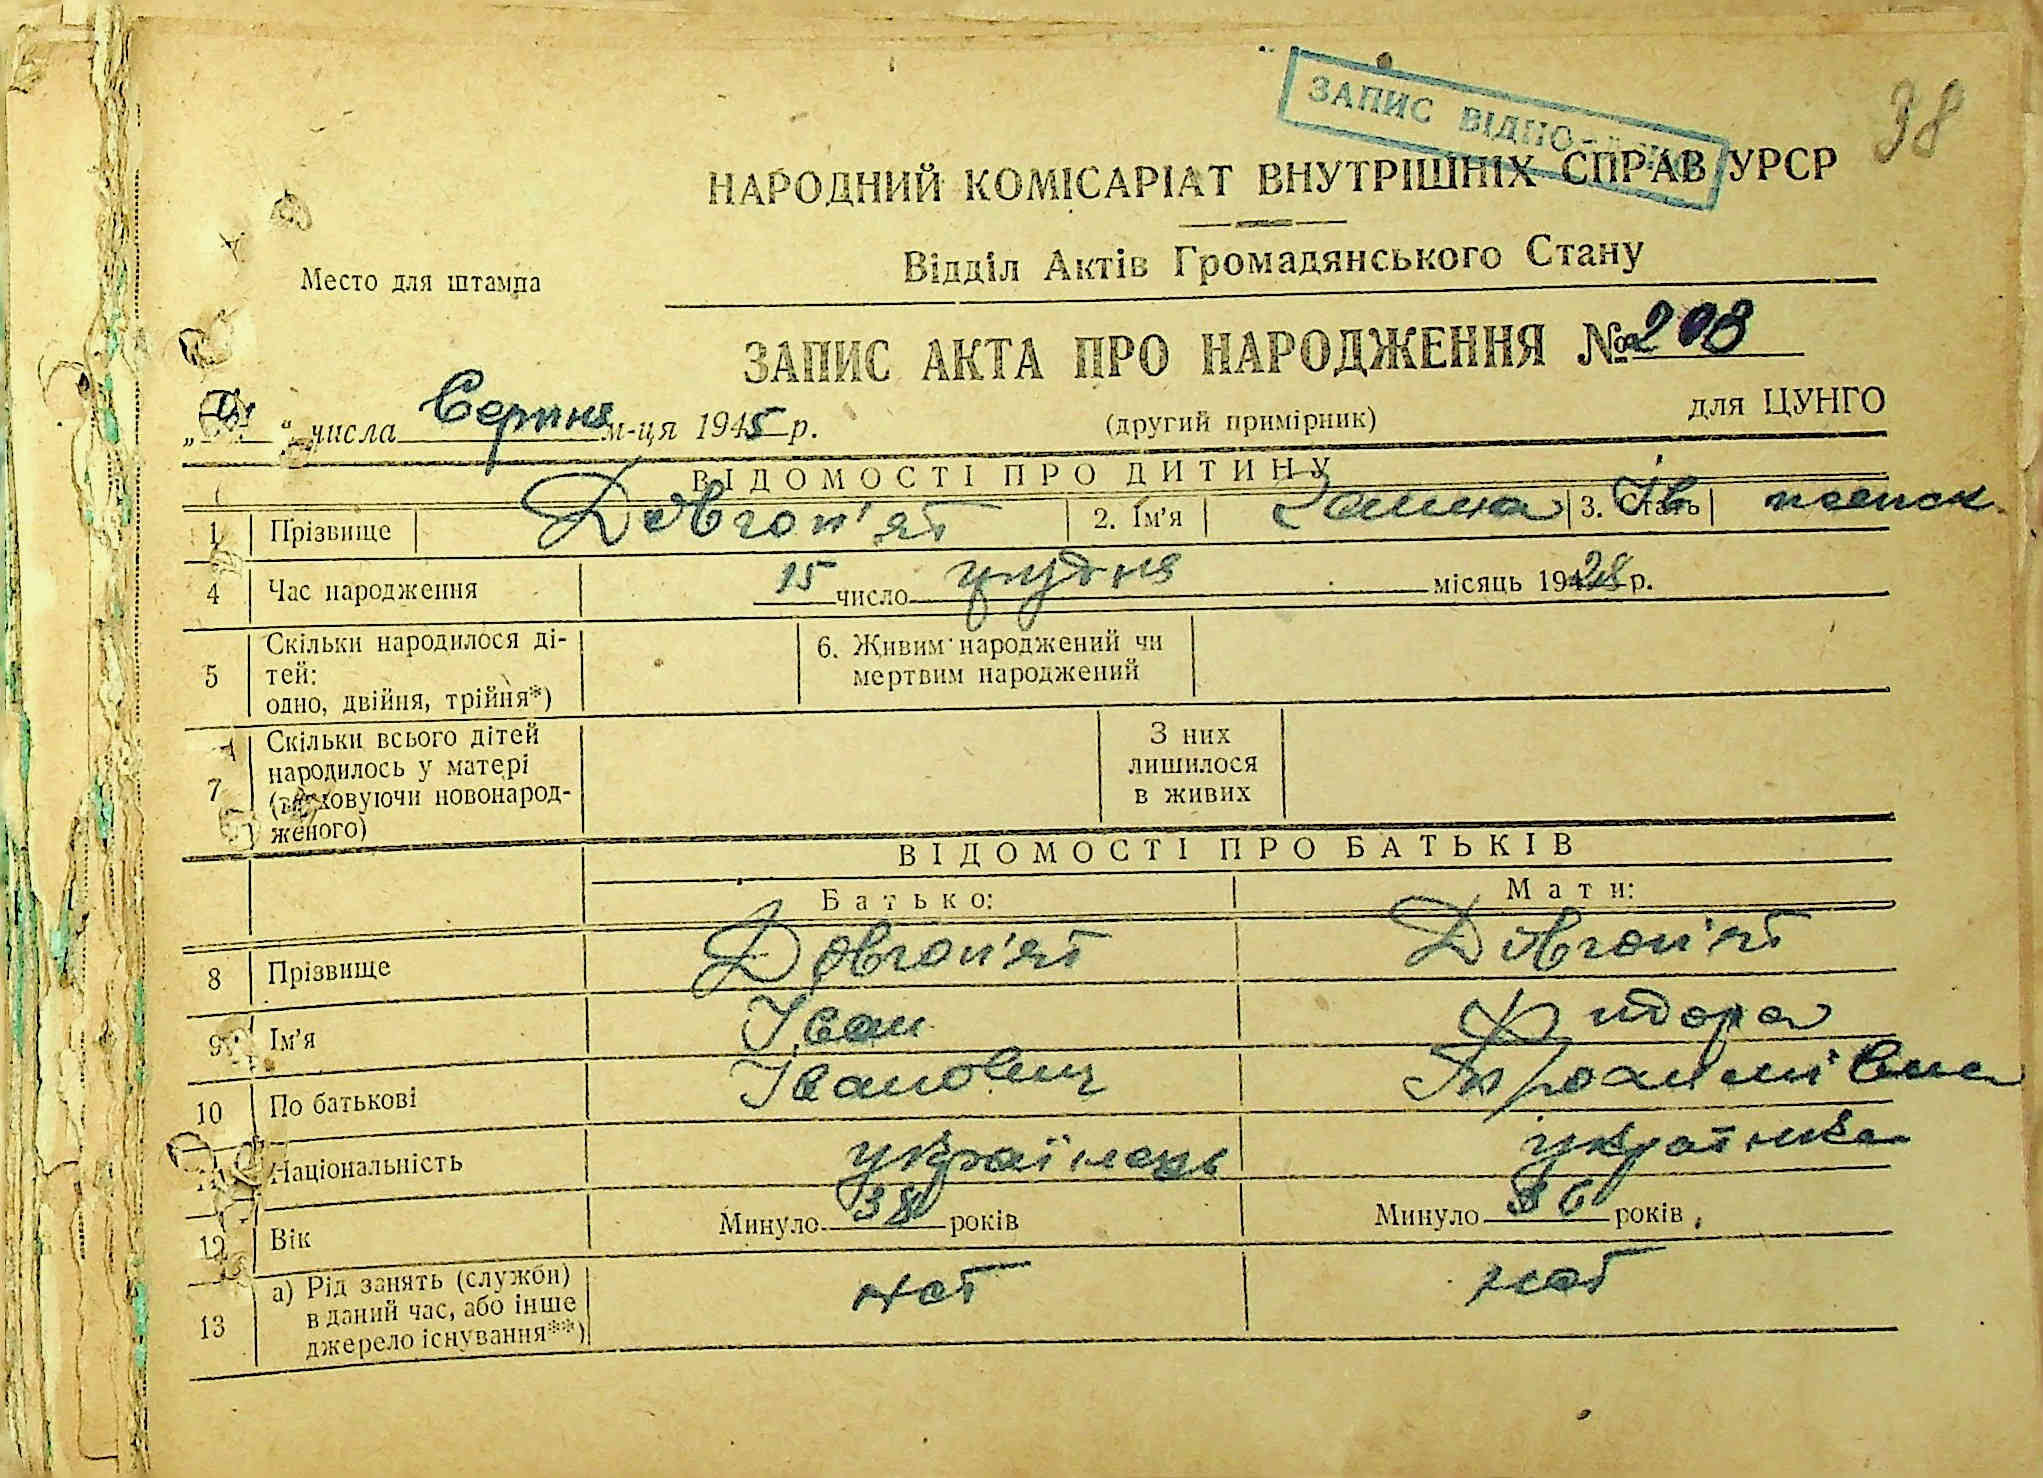 38
ЗАПИС
НАРОДНИЙ КОМІСАРІАТ ВНУТРІШНІХ СПРАВ УРСР
Відділ Актів Громадянського Стану
Место для штампа
ЗАПИС АКТА ПРО НАРОДЖЕННЯ № 208
(другий примірник)
для ЦУНГО
„ “ числа Серпня м-ця 1945 р.
ВІДОМОСТІ ПРО ДИТИНУ
1 Прізвище Довгоп'ят 2. Ім'я Ганна Ів 3. Стать женск.
4 Час народження 15 число грудня місяць 1928 р.
5 Скільки народилося ді-
тей:
одно, двійня, трійня*)
6. Живим народжений чи
мертвим народжений
7 Скільки всього дітей
народилось у матері
(враховуючи новонарод-
женого)
З них
лишилося
в живих
ВІДОМОСТІ ПРО БАТЬКІВ
Батько: Мати:
8 Прізвище Довгоп'ят Довгоп'ят
9 Ім'я Іван Хидора
10 По батькові Іванович
11 Національність українець українка
12 Вік Минуло 38 років Минуло 36 років
13 а) Рід занять (служби)
в даний час, або інше
джерело існування**)